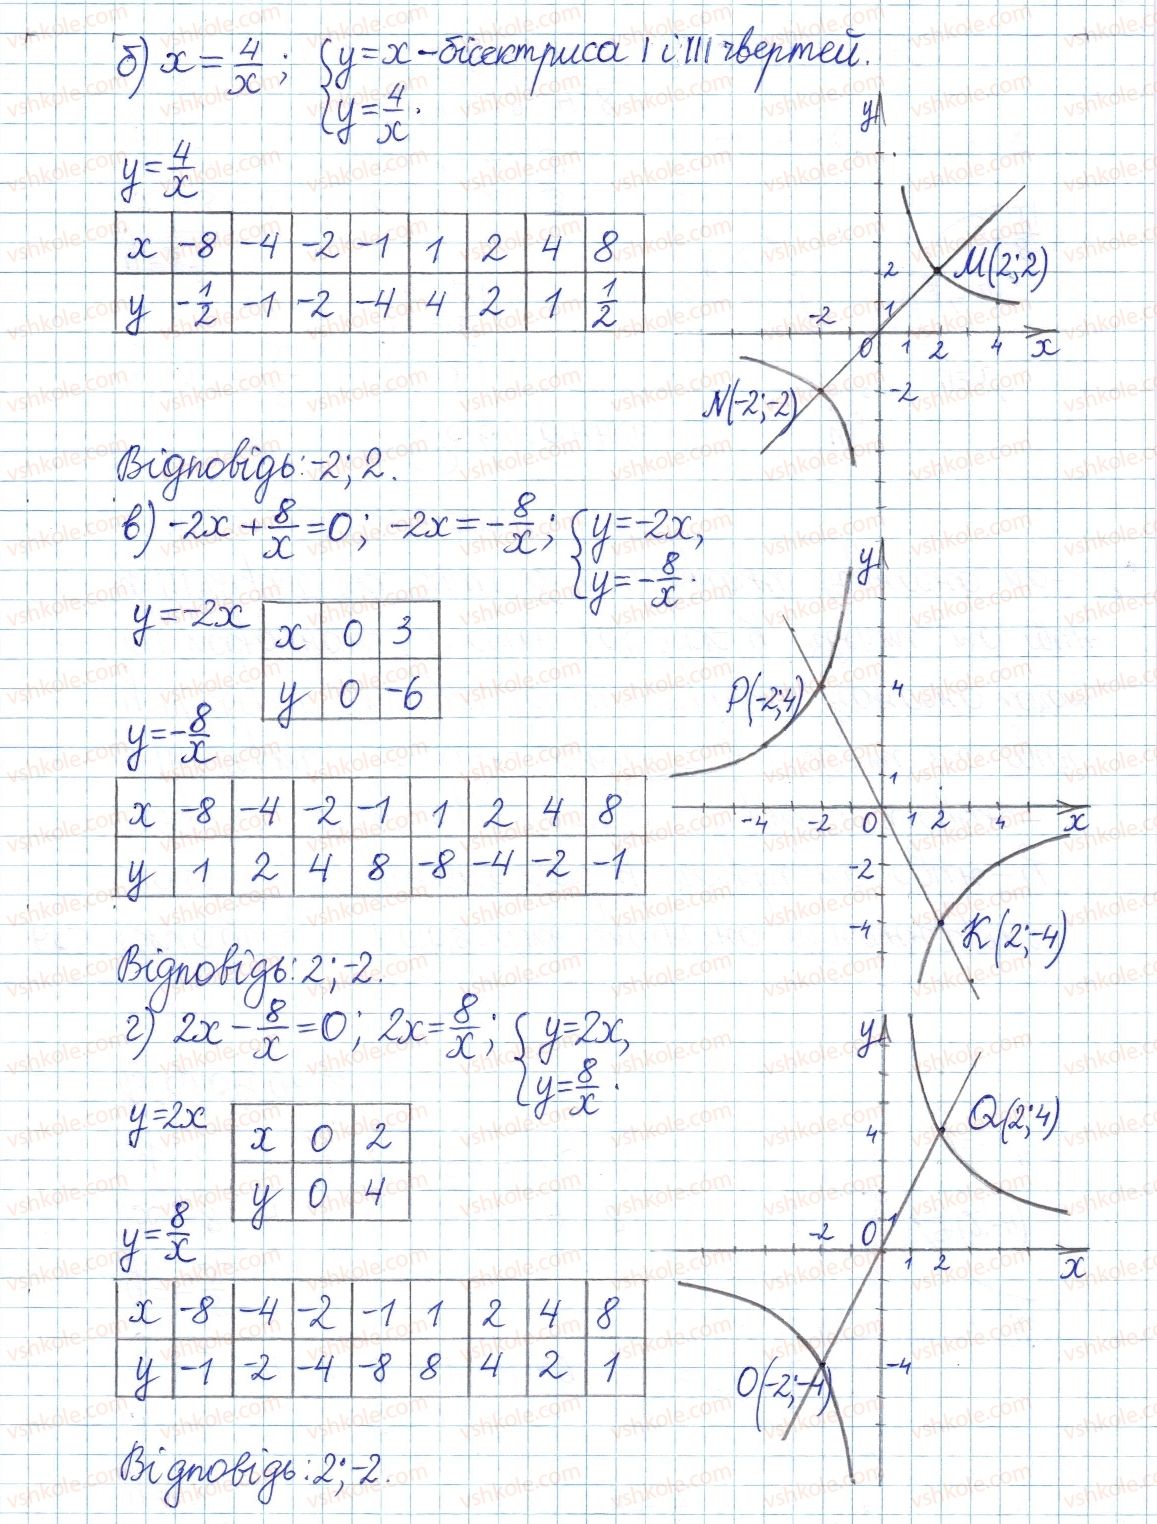 б) x = 4/x; { y = x – бісектриса I і III чвертей.
y = 4/x.
y = 4/x
x -8 -4 -2 -1 1 2 4 8
y -1/2 -1 -2 -4 4 2 1 1/2
y
M(2;2)
2
1
-2
0 1 2 4 x
-2
N(-2;-2)
Відповідь: -2; 2.
в) -2x + 8/x = 0; -2x = -8/x; { y = -2x,
y = -8/x.
y = -2x
x 0 3
y 0 -6
y = -8/x
x -8 -4 -2 -1 1 2 4 8
y 1 2 4 8 -8 -4 -2 -1
y
P(-2;4)
4
1
-4 -2 0 1 2 4 x
-2
-4
K(2;-4)
Відповідь: 2; -2.
г) 2x - 8/x = 0; 2x = 8/x; { y = 2x,
y = 8/x.
y = 2x
x 0 2
y 0 4
y = 8/x
x -8 -4 -2 -1 1 2 4 8
y -1 -2 -4 -8 8 4 2 1
y
Q(2;4)
4
1
-2 0
1 2 x
-4
O(-2;-4)
Відповідь: 2; -2.
vshkole.com